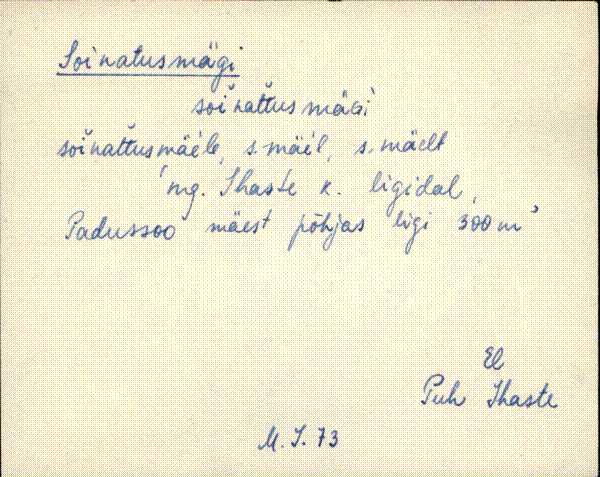 Soinatusmägi
soi͔nat̆tusmäɢi
soi͔nat̆tusmäele, s.mäel, s.mäelt
'mg. Ihaste k. ligidal,
Padussoo mäest põhjas ligi 300 m'
El
Puh Ihaste
M. J. 73